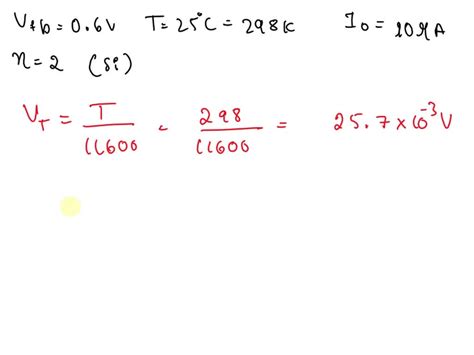 V₊b = 0.6V T = 25°C = 298K I₀ = 10µA
η = 2 (Si)
V_T = T/11600 = 298/11600 = 25.7 × 10⁻³ V